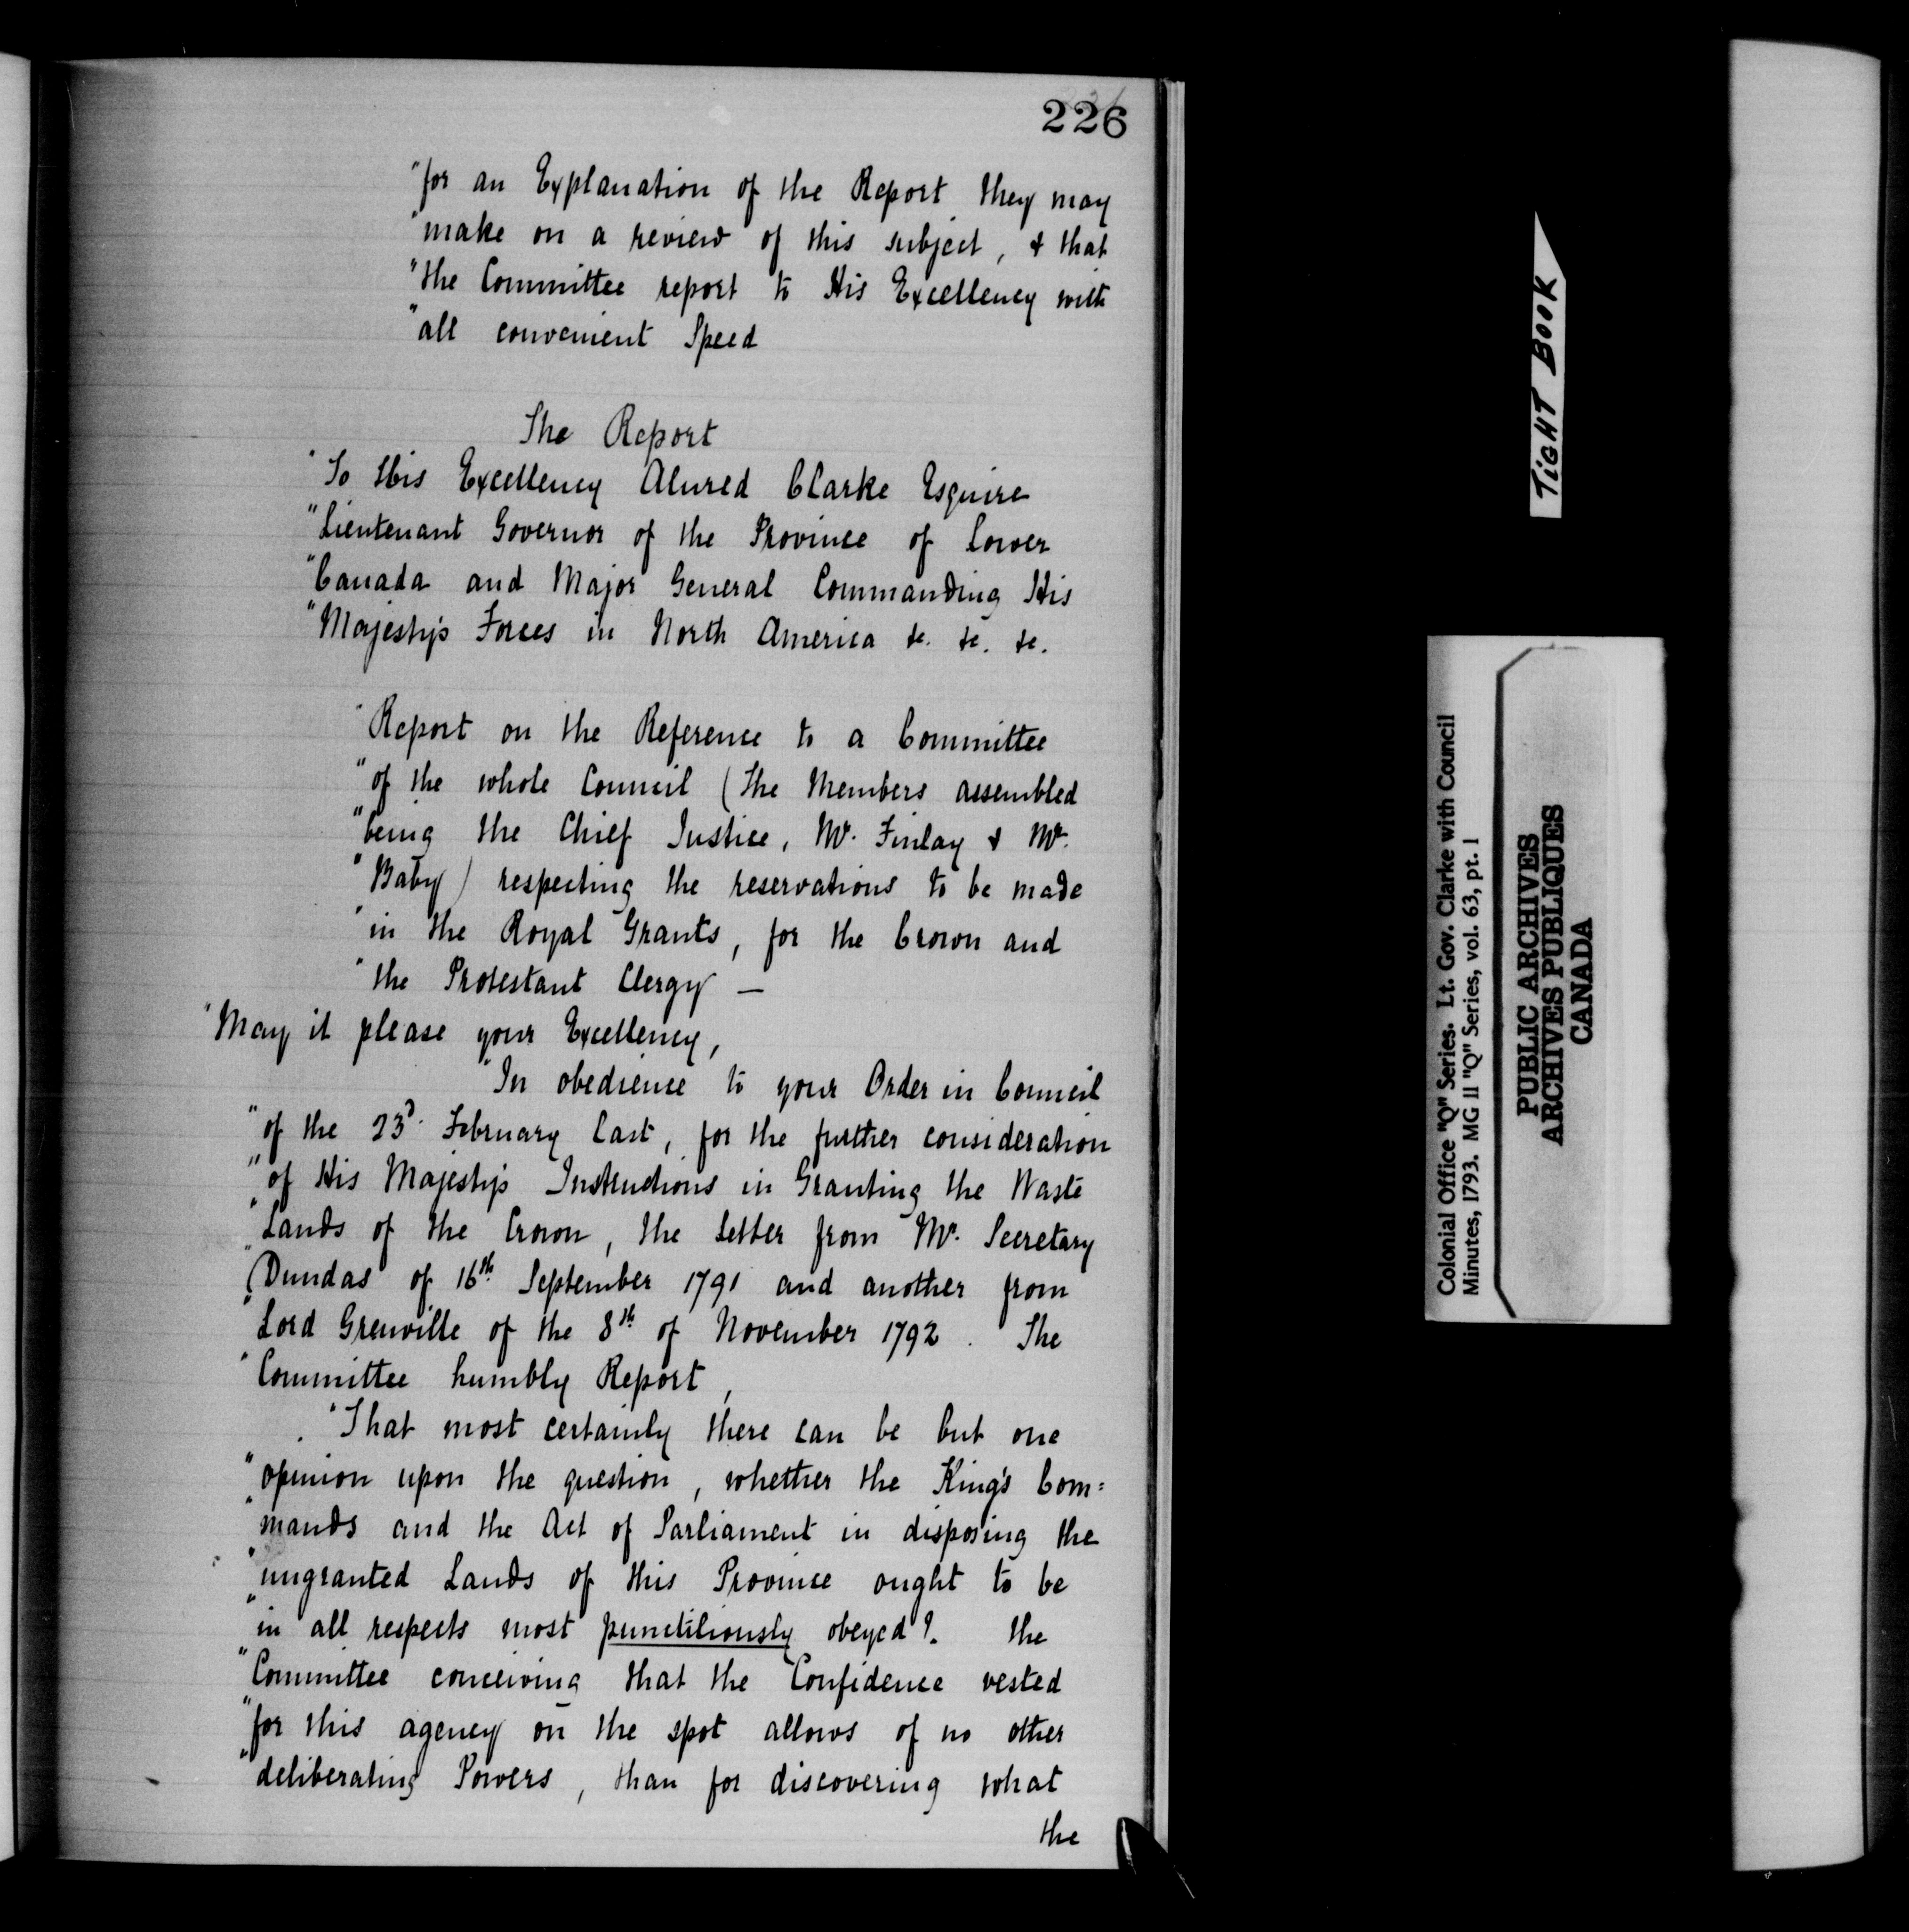 226
"for an Explanation of the Report they may
"make on a review of this subject, & that
"the Committee report to His Excellency with
"all convenient Speed
The Report
"To His Excellency Alured Clarke Esquire
"Lieutenant Governor of the Province of Lower
"Canada and Major General Commanding His
"Majesty's Forces in North America &c. &c. &c.
"Report on the Reference to a Committee
"of the whole Council (The Members assembled
"being the Chief Justice, Mr. Finlay & Mr.
"Baby) respecting the reservations to be made
"in the Royal Grants, for the Crown and
"the Protestant Clergy —
"May it please your Excellency,
"In obedience to your Order in Council
"of the 23d. February last, for the further consideration
"of His Majesty's Instructions in Granting the Waste
"Lands of the Crown, the letter from Mr. Secretary
"Dundas of 16th September 1791 and another from
"Lord Grenville of the 8th of November 1792. The
"Committee humbly Report,
"That most certainly there can be but one
"opinion upon the question, whether the King's Com=
"mands and the Act of Parliament in disposing the
"ungranted Lands of this Province ought to be
"in all respects most punctiliously obeyed?. the
"Committee conceiving that the Confidence vested
"for this agency on the spot allows of no other
"deliberating Powers, than for discovering what
the
TIGHT BOOK
Colonial Office "Q" Series. Lt. Gov. Clarke with Council
Minutes, 1793. MG 11 "Q" Series, vol. 63, pt. 1
PUBLIC ARCHIVES
ARCHIVES PUBLIQUES
CANADA